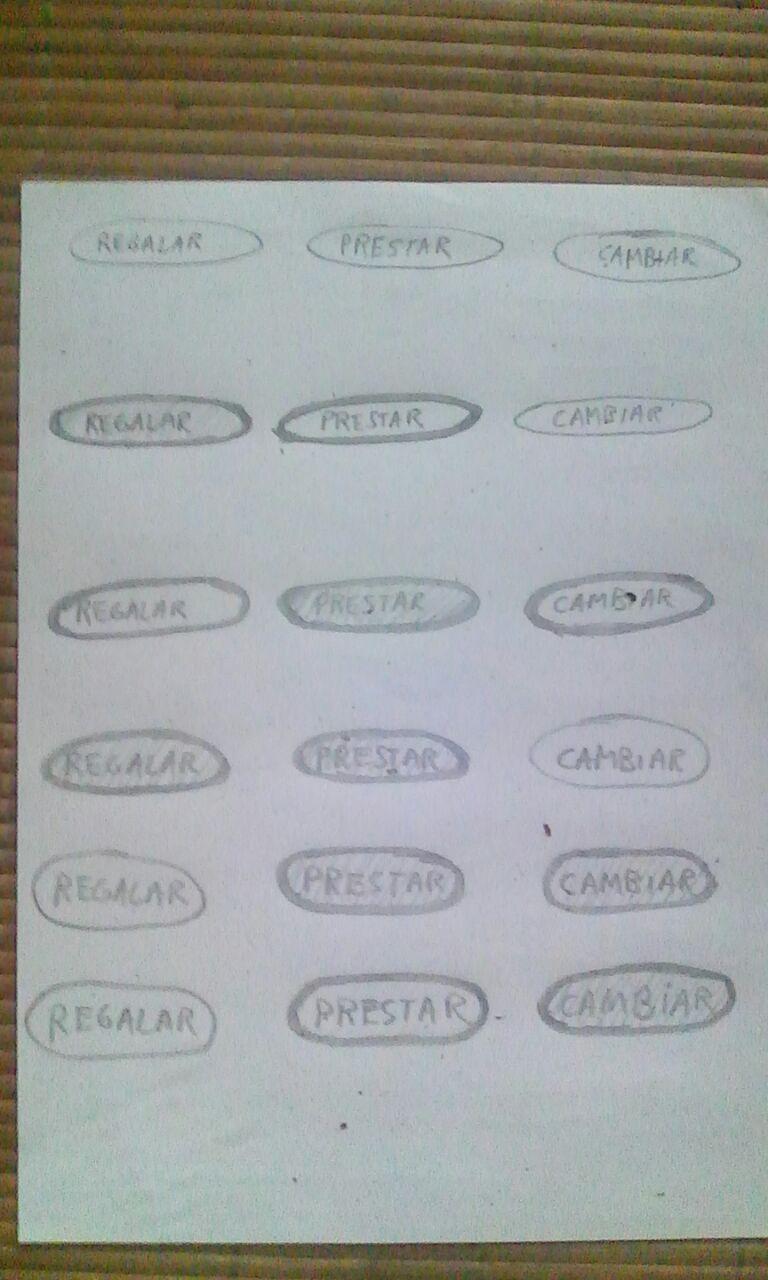 REGALAR PRESTAR CAMBIAR
REGALAR PRESTAR CAMBIAR
REGALAR PRESTAR CAMBIAR
REGALAR PRESTAR CAMBIAR
REGALAR PRESTAR CAMBIAR
REGALAR PRESTAR CAMBIAR